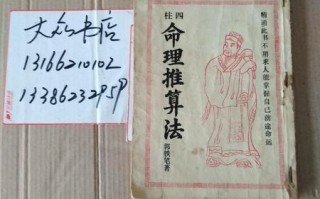 大众书店
13166210102
13386232959
四柱
命理推算法
郭铁笔著
精通此书不用求人能掌握自己前途命运